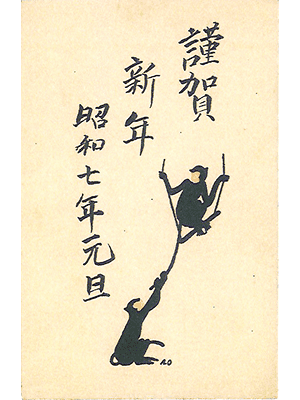 謹賀
新年
昭和七年元旦